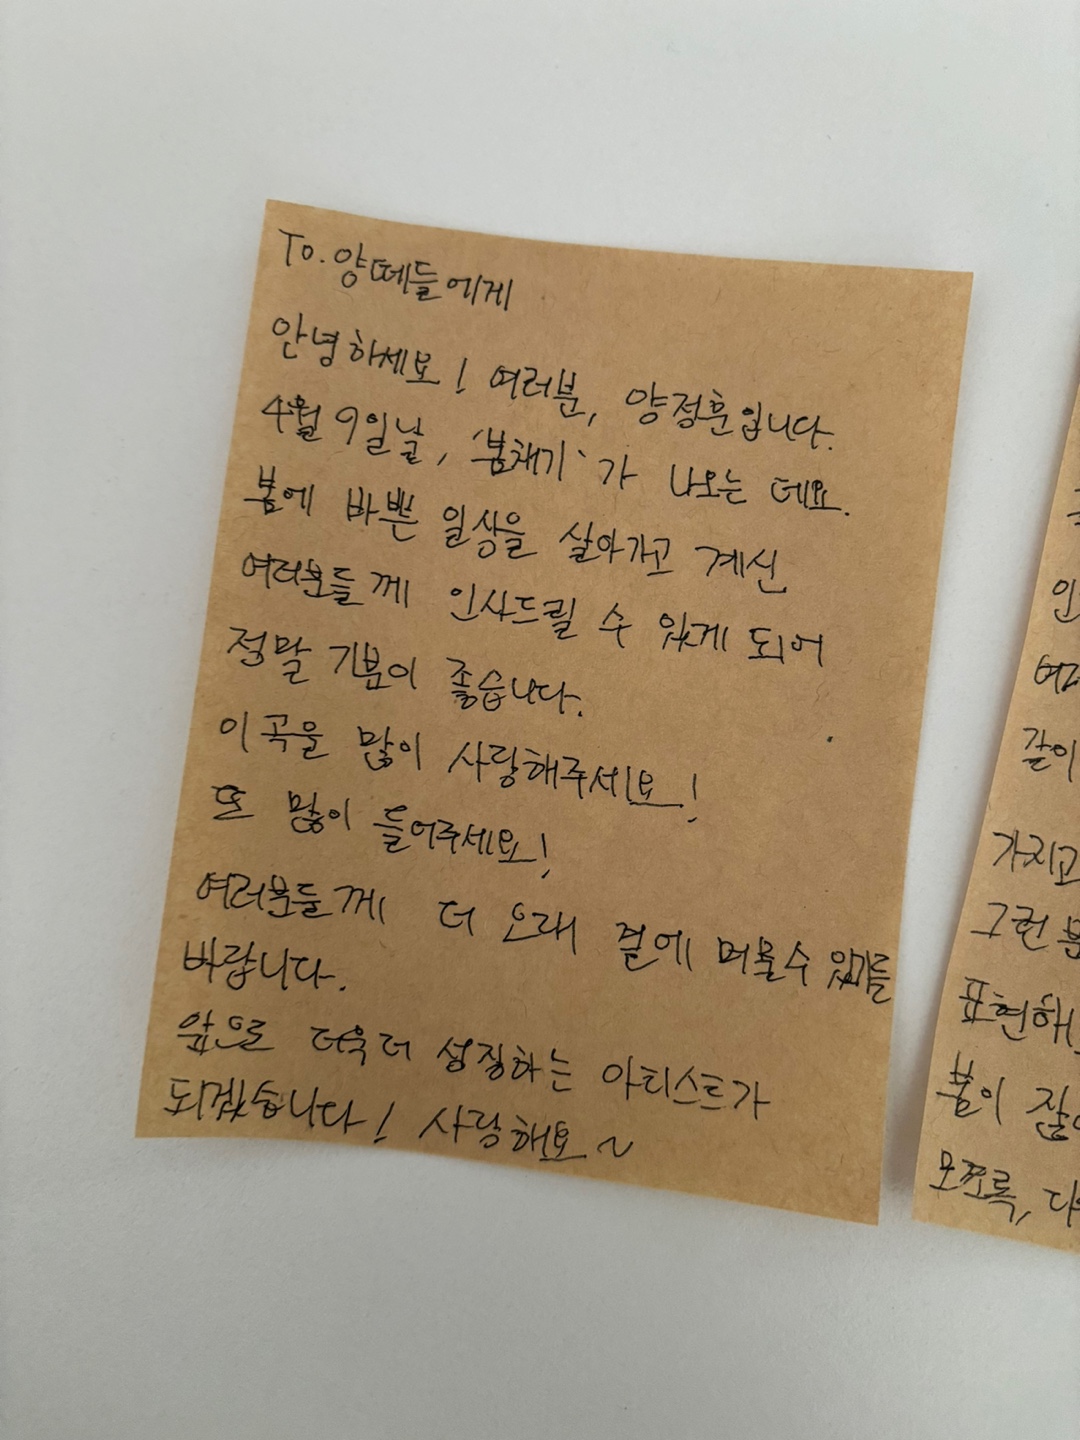 To. 양떼들에게
안녕하세요! 여러분, 양정훈입니다.
4월 9일날, '봄채기'가 나오는 데요.
봄에 바쁜 일상을 살아가고 계신
여러분들께 인사드릴 수 있게 되어
정말 기분이 좋습니다.
이 곡을 많이 사랑해주세요!
또 많이 들어주세요!
여러분들께 더 오래 곁에 머물 수 있기를
바랍니다.
앞으로 더욱 더 성장하는 아티스트가
되겠습니다! 사랑해요~
인
여러
같이
가지고
그런
표현해
봄이 잘
모쪼록, 다